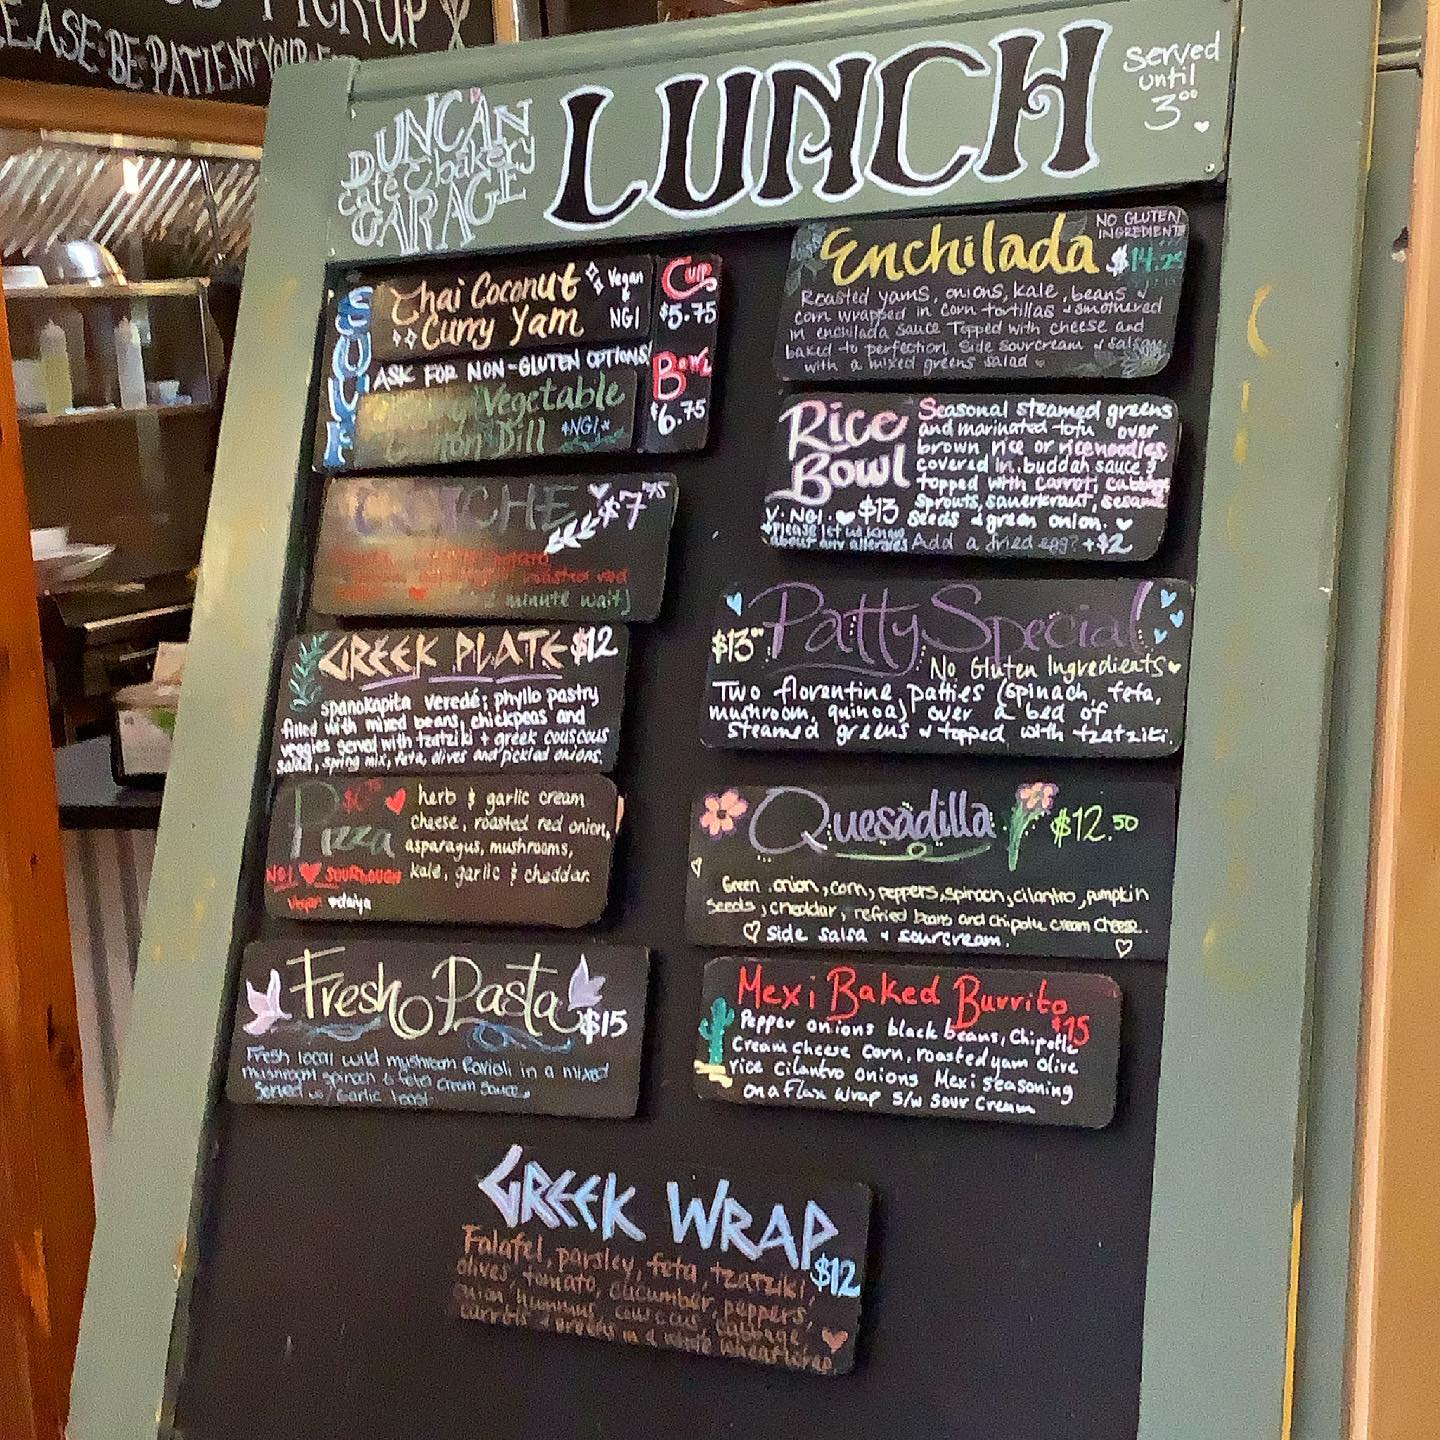 PICKUP
EASE·BE·PATIENT·YOUR
DUNCAN
cafe & bakery
GARAGE
LUNCH
Served
until
3⁰⁰
SOUP
Thai Coconut
Curry Yam
Vegan
&
NGI
ASK FOR NON-GLUTEN OPTIONS
Vegetable
Dill *NGI*
Cup
$5.75
Bowl
$6.75
QUICHE $7.75
roasted red
minute wait)
GREEK PLATE $12
spanokapita veredé; phyllo pastry
filled with mixed beans, chickpeas and
veggies served with tzatziki + greek couscous
salad, spring mix, feta, olives and pickled onions.
Pizza
NGI ♥ SOURDOUGH
Vegan daiya
herb & garlic cream
cheese, roasted red onion,
asparagus, mushrooms,
kale, garlic & cheddar.
Fresh Pasta
$15
Fresh local wild myshroom Ravioli in a mixed
mushroom spinach & feta cream sauce.
Served w/ Garlic toast.
Enchilada
NO GLUTEN
INGREDIENTS
$14.25
Roasted yams, onions, kale, beans &
corn wrapped in corn tortillas & smothered
in enchilada sauce Topped with cheese and
baked to perfection. Side sourcream & salsa
with a mixed greens salad
Rice
Bowl
V·NGI·♥ $13
*please let us know
about any allergies
Seasonal steamed greens
and marinated tofu over
brown rice or rice noodles,
covered in buddah sauce &
topped with carrot, cabbage
sprouts, sauerkraut, sesame
seeds & green onion.
Add a fried egg? +$2
Patty Special
$13⁰⁰
No Gluten Ingredients
Two florentine patties (spinach, feta,
mushroom, quinoa) over a bed of
steamed greens & topped with tzatziki.
Quesadilla $12.50
Green onion, corn, peppers, spinach, cilantro, pumpkin
seeds, cheddar, refried beans and chipotle cream cheese.
side salsa & sourcream.
Mexi Baked Burrito
$15
Pepper onions black beans, Chipotle
Cream cheese corn, roasted yam olive
rice cilantro onions Mexi seasoning
on a Flax wrap s/w sour cream
GREEK WRAP
$12
Falafel, parsley, feta, tzatziki,
olives, tomato, cucumber, peppers,
onion, hummus, couscous, cabbage
carrots & greens in a whole wheat wrap